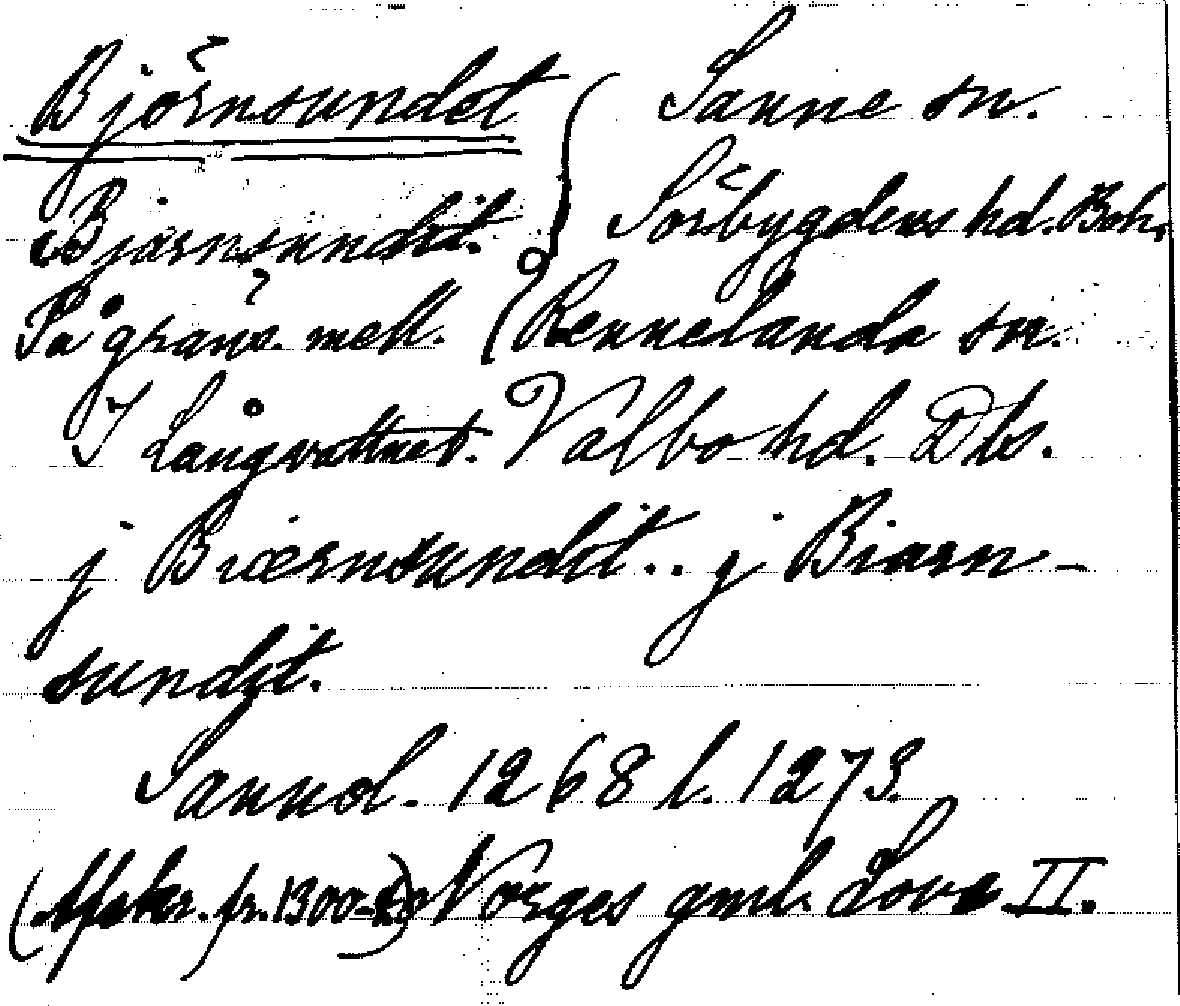 Björnsundet { Sanne sn.
Bjarnsundit. Sörbygdens hd. Boh.
På gräns. mell. { Rennelanda sn.
I Långvattnet. Valbo hd. Dls.
j Biærnsundit.. j Biarn-
sundit.
Sannol. 1268 l. 1273.
(Afskr. fr. 1300-t) Norges gml. Love II.